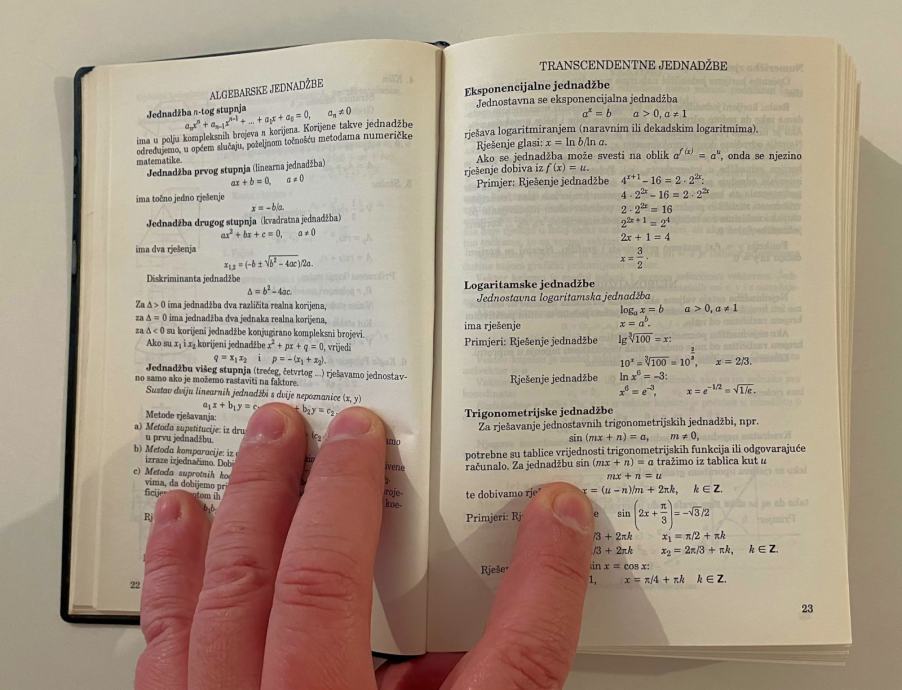 ALGEBARSKE JEDNADŽBE
Jednadžba n-tog stupnja
aₙxⁿ + aₙ₋₁xⁿ⁻¹ + ... + a₁x + a₀ = 0, aₙ ≠ 0
ima u polju kompleksnih brojeva n korijena. Korijene takve jednadžbe
određujemo, u općem slučaju, poželjnom točnošću metodama numeričke
matematike.
Jednadžba prvog stupnja (linearna jednadžba)
ax + b = 0, a ≠ 0
ima točno jedno rješenje
x = –b/a.
Jednadžba drugog stupnja (kvadratna jednadžba)
ax² + bx + c = 0, a ≠ 0
ima dva rješenja
x₁,₂ = (–b ± √b² – 4ac)/2a.
Diskriminanta jednadžbe
Δ = b² – 4ac.
Za Δ > 0 ima jednadžba dva različita realna korijena,
za Δ = 0 ima jednadžba dva jednaka realna korijena,
za Δ < 0 su korijeni jednadžbe konjugirano kompleksni brojevi.
Ako su x₁ i x₂ korijeni jednadžbe x² + px + q = 0, vrijedi
q = x₁x₂ i p = –(x₁ + x₂).
Jednadžbu višeg stupnja (trećeg, četvrtog ...) rješavamo jednostav-
no samo ako je možemo rastaviti na faktore.
Sustav dviju linearnih jednadžbi s dvije nepoznanice (x, y)
a₁x + b₁y = b₂y = c₂
Metode rješavanja:
a) Metoda supstitucije: iz
u prvu jednadžbu.
b) Metoda komparacije: iz
izraze izjednačimo.
c) Metoda suprotnih
vima, da dobijemo
22
TRANSCENDENTNE JEDNADŽBE
Eksponencijalne jednadžbe
Jednostavna se eksponencijalna jednadžba
aˣ = b a > 0, a ≠ 1
rješava logaritmiranjem (naravnim ili dekadskim logaritmima).
Rješenje glasi: x = ln b/ln a.
Ako se jednadžba može svesti na oblik a^f(x) = aᵘ, onda se njezino
rješenje dobiva iz f (x) = u.
Primjer: Rješenje jednadžbe 4ˣ⁺¹ – 16 = 2 · 2²ˣ:
4 · 2²ˣ – 16 = 2 · 2²ˣ
2 · 2²ˣ = 16
2²ˣ⁺¹ = 2⁴
2x + 1 = 4
x = 3/2.
Logaritamske jednadžbe
Jednostavna logaritamska jednadžba
logₐ x = b a > 0, a ≠ 1
ima rješenje x = aᵇ.
Primjeri: Rješenje jednadžbe lg ³√100 = x:
10ˣ = ³√100 = 10^(2/3), x = 2/3.
Rješenje jednadžbe ln x⁶ = –3:
x⁶ = e⁻³, x = e⁻¹ᐟ² = √1/e.
Trigonometrijske jednadžbe
Za rješavanje jednostavnih trigonometrijskih jednadžbi, npr.
sin (mx + n) = a, m ≠ 0,
potrebne su tablice vrijednosti trigonometrijskih funkcija ili odgovarajuće
računalo. Za jednadžbu sin (mx + n) = a tražimo iz tablica kut u
mx + n = u
te dobivamo x = (u – n)/m + 2πk, k ∈ Z.
Primjeri: sin (2x + π/3) = –√3/2
/3 + 2πk x₁ = π/2 + πk
/3 + 2πk x₂ = 2π/3 + πk, k ∈ Z.
x = cos x:
1, x = π/4 + πk k ∈ Z.
23